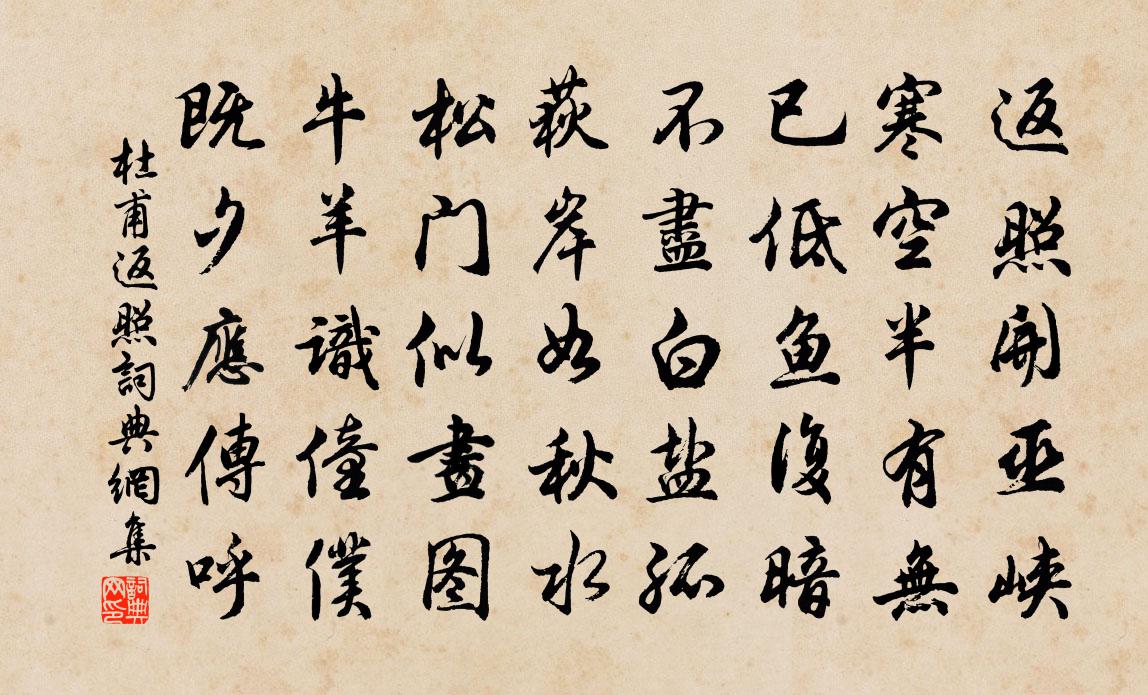 返照開巫峽
寒空半有無
已低魚復暗
不盡白盐孤
荻岸如秋水
松门似畫图
牛羊識僮僕
既夕應傳呼
杜甫返照詞典網集
詞典网印